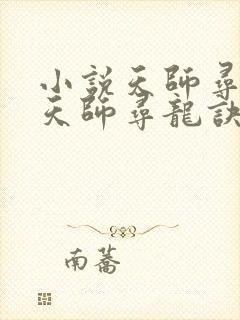 小說天師尋
天師尋龍訣
南蕎